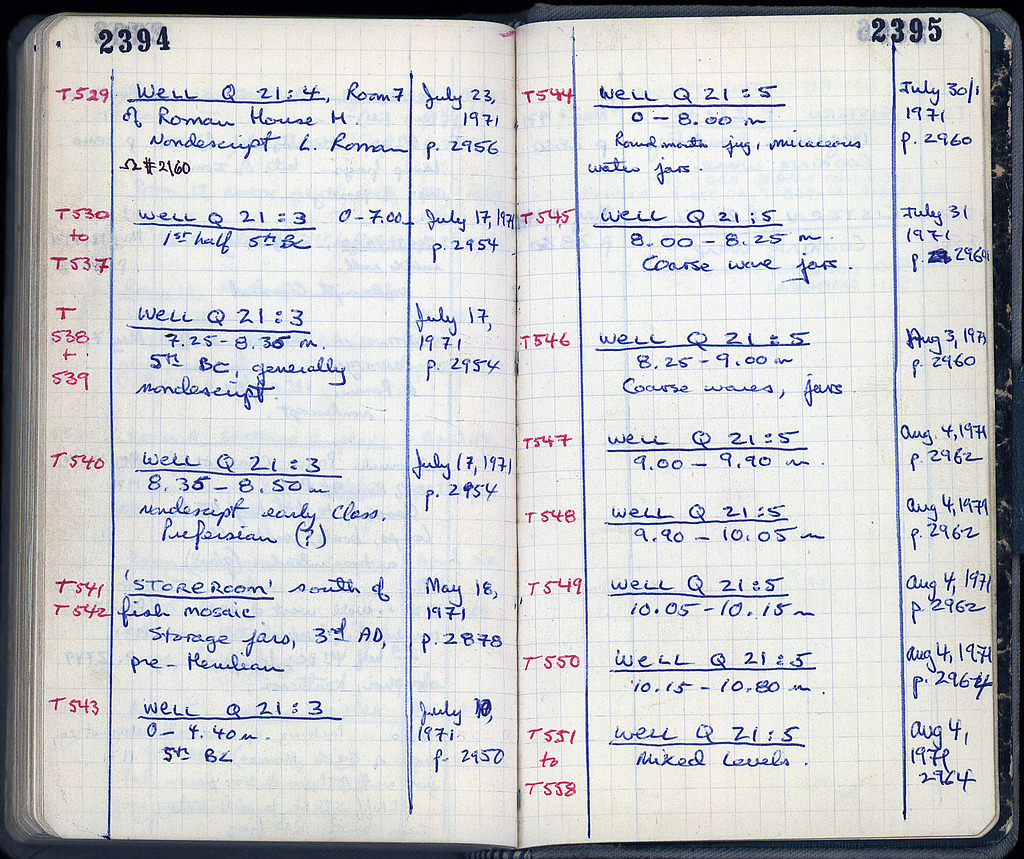 2394
T529 Well Q 21:4, Room 7 July 23,
of Roman House H. 1971
Nondescript L. Roman p. 2956
Ω#2160
T530 Well Q 21:3 0-7.00 July 17, 1971
to 1st half 5th BC p. 2954
T537
T Well Q 21:3 July 17,
538 7.25-8.35 m. 1971
+ 5th BC, generally p. 2954
539 nondescript.
T540 Well Q 21:3 July 17, 1971
8.35 - 8.50 m p. 2954
nondescript early Class.
Prepersian (?)
T541 'STOREROOM' south of May 18,
T542 fish mosaic 1971
Storage jars, 3rd AD, p. 2878
pre-Herulian
T543 Well Q 21:3 July
0- 4.40 m. 1971
5th BC p. 2950
2395
T544 Well Q 21:5 July 30/1
0 - 8.00 m 1971
Round mouth jug, micaceous p. 2960
water jars.
T545 Well Q 21:5 July 31
8.00 - 8.25 m. 1971
Coarse ware jars. p. 2960
T546 Well Q 21:5 Aug 3, 1971
8.25 - 9.00 m p. 2960
Coarse wares, jars
T547 Well Q 21:5 Aug. 4, 1971
9.00 - 9.90 m. p. 2962
T548 Well Q 21:5 Aug 4, 1971
9.90 - 10.05 m p. 2962
T549 Well Q 21:5 Aug 4, 1971
10.05 - 10.15 m p. 2962
T550 Well Q 21:5 Aug 4, 1971
10.15 - 10.80 m. p. 2964
T551 Well Q 21:5 Aug 4,
to Mixed Levels. 1971
T558 2964